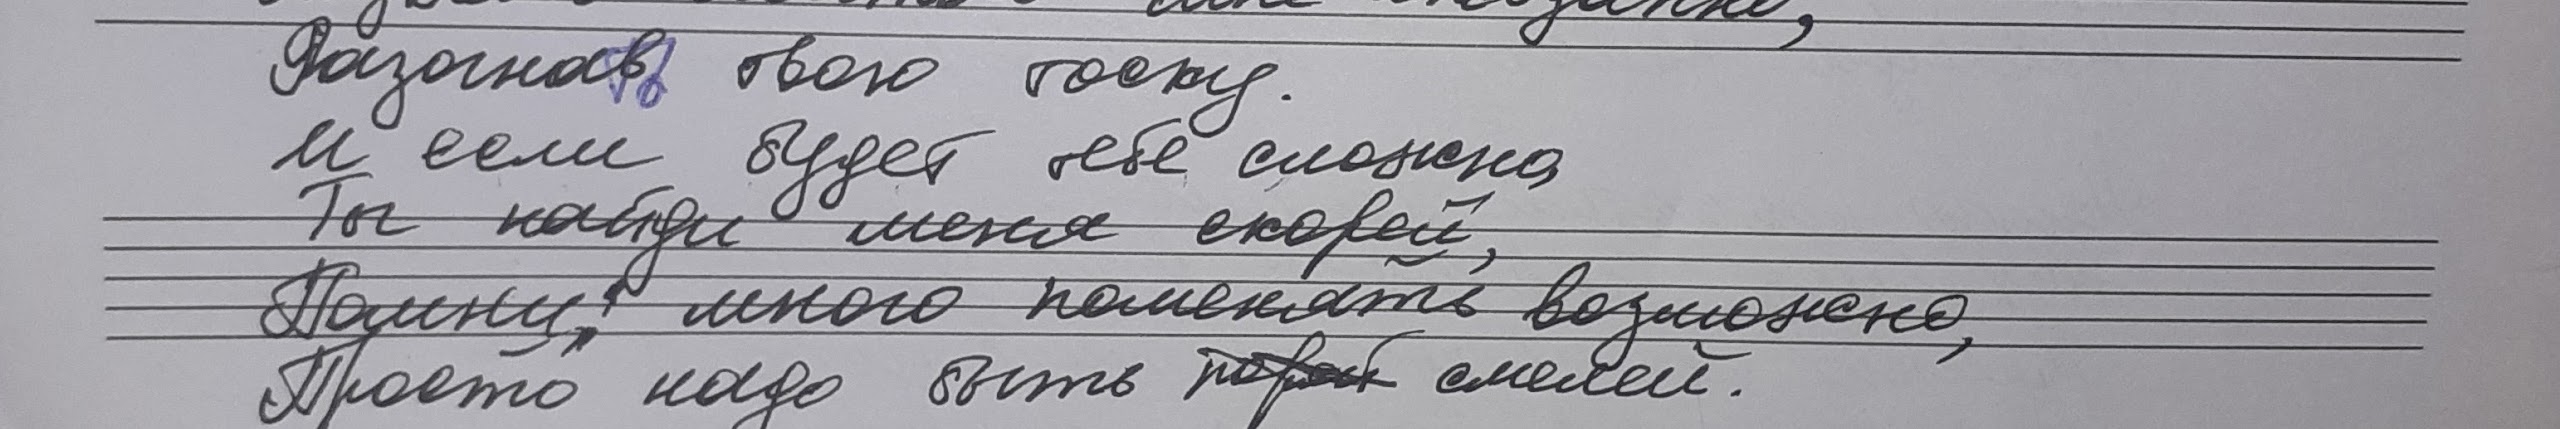 мне внезапно,
Разогнав твою тоску.
И если будет тебе сложно,
Ты найди меня скорей,
Помни, много поменять возможно,
Просто надо быть порой смелей.